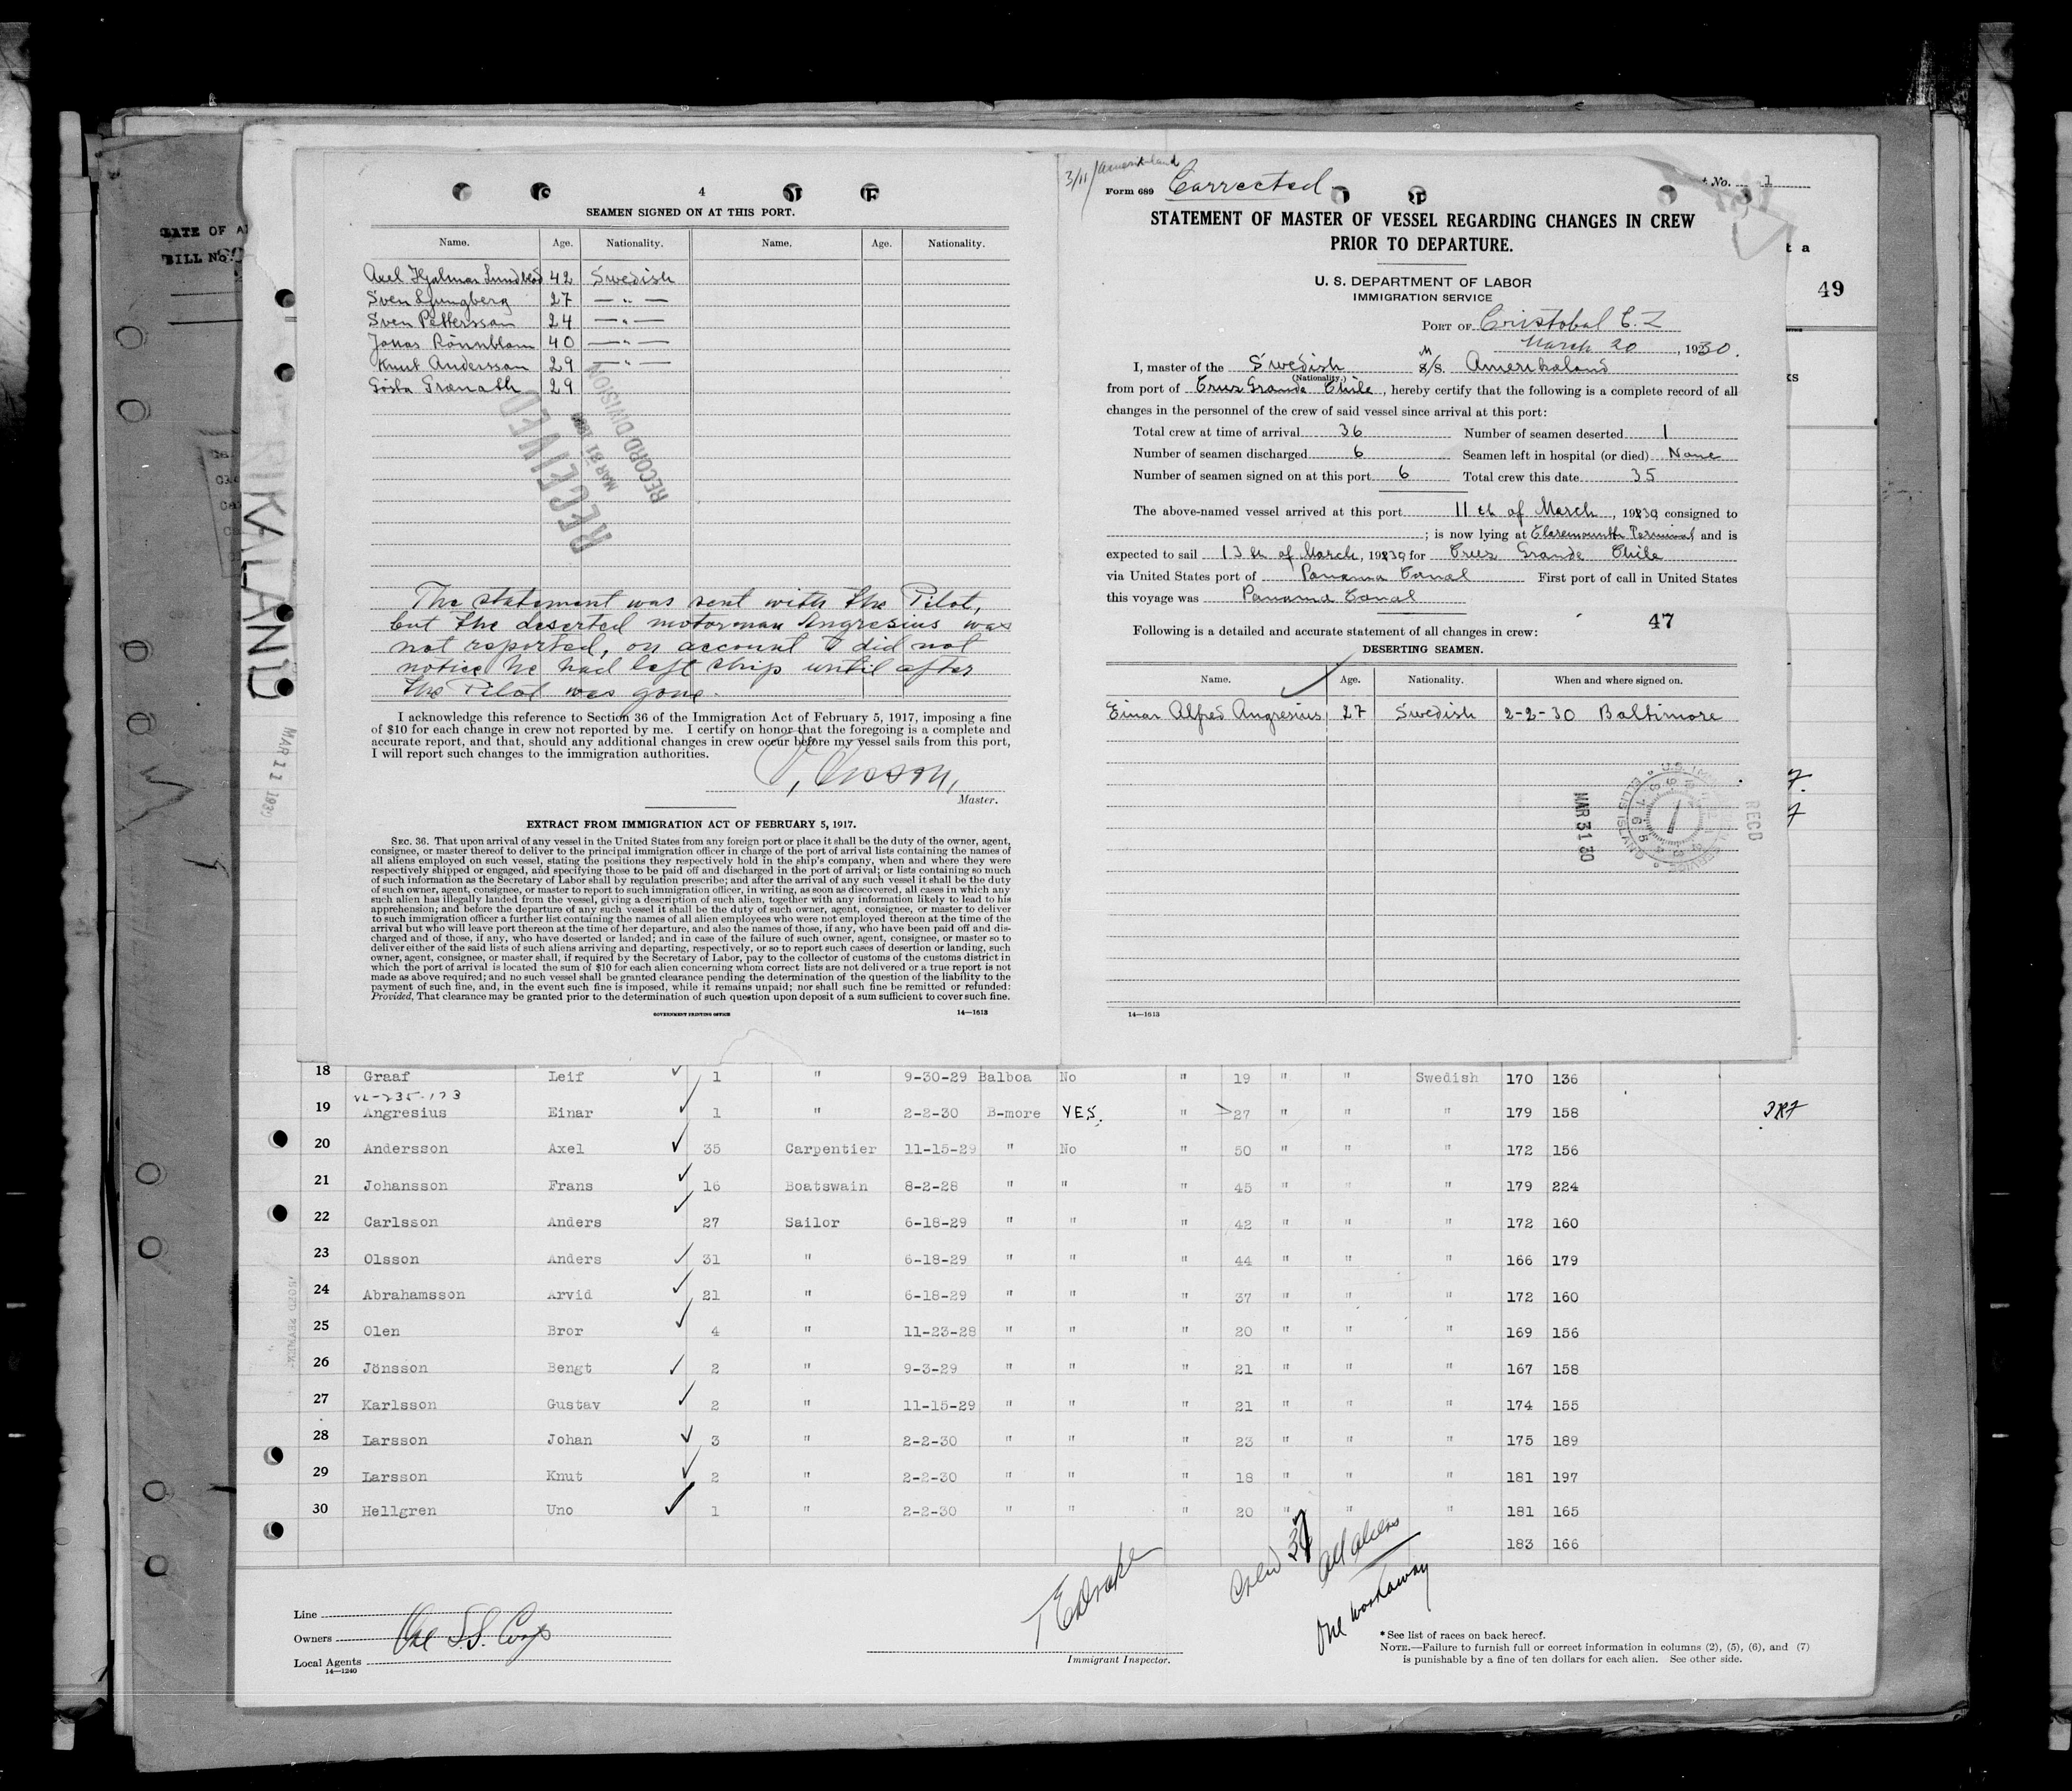 4
SEAMEN SIGNED ON AT THIS PORT.
Name. Age. Nationality. Name. Age. Nationality.
Axel Hjalmar Lundblad 42 Swedish
Sven Ljungberg 27 — " —
Sven Pettersson 24 — " —
Jonas Rönnblom 40 — " —
Knut Andersson 29 — " —
Gösta Granath 29
RECEIVED
MAR 31 1930
RECORD DIVISION
The statement was sent with the Pilot,
but the deserted motorman Angresius was
not reported, on account I did not
notice he had left ship until after
the Pilot was gone.
I acknowledge this reference to Section 36 of the Immigration Act of February 5, 1917, imposing a fine
of $10 for each change in crew not reported by me. I certify on honor that the foregoing is a complete and
accurate report, and that, should any additional changes in crew occur before my vessel sails from this port,
I will report such changes to the immigration authorities.
Master.
EXTRACT FROM IMMIGRATION ACT OF FEBRUARY 5, 1917.
SEC. 36. That upon arrival of any vessel in the United States from any foreign port or place it shall be the duty of the owner, agent,
consignee, or master thereof to deliver to the principal immigration officer in charge of the port of arrival lists containing the names of
all aliens employed on such vessel, stating the positions they respectively hold in the ship's company, when and where they were
respectively shipped or engaged, and specifying those to be paid off and discharged in the port of arrival; or lists containing so much
of such information as the Secretary of Labor shall by regulation prescribe; and after the arrival of any such vessel it shall be the duty
of such owner, agent, consignee, or master to report to such immigration officer, in writing, as soon as discovered, all cases in which any
such alien has illegally landed from the vessel, giving a description of such alien, together with any information likely to lead to his
apprehension; and before the departure of any such vessel it shall be the duty of such owner, agent, consignee, or master to deliver
to such immigration officer a further list containing the names of all alien employees who were not employed thereon at the time of the
arrival but who will leave port thereon at the time of her departure, and also the names of those, if any, who have been paid off and dis-
charged and of those, if any, who have deserted or landed; and in case of the failure of such owner, agent, consignee, or master so to
deliver either of the said lists of such aliens arriving and departing, respectively, or so to report such cases of desertion or landing, such
owner, agent, consignee, or master shall, if required by the Secretary of Labor, pay to the collector of customs of the customs district in
which the port of arrival is located the sum of $10 for each alien concerning whom correct lists are not delivered or a true report is not
made as above required; and no such vessel shall be granted clearance pending the determination of the question of the liability to the
payment of such fine, and, in the event such fine is imposed, while it remains unpaid; nor shall such fine be remitted or refunded:
Provided, That clearance may be granted prior to the determination of such question upon deposit of a sum sufficient to cover such fine.
GOVERNMENT PRINTING OFFICE 14—1613
3/11/Amerikaland
Form 689 Corrected No. 1
STATEMENT OF MASTER OF VESSEL REGARDING CHANGES IN CREW
PRIOR TO DEPARTURE.
U. S. DEPARTMENT OF LABOR
IMMIGRATION SERVICE
PORT OF Cristobal C. Z
March 20, 1930.
I, master of the Swedish M/S. Amerikaland
(Nationality.)
from port of Cruz Grande Chile, hereby certify that the following is a complete record of all
changes in the personnel of the crew of said vessel since arrival at this port:
Total crew at time of arrival 36 Number of seamen deserted 1
Number of seamen discharged 6 Seamen left in hospital (or died) None
Number of seamen signed on at this port 6 Total crew this date 35
The above-named vessel arrived at this port 11 th of March, 1930, consigned to
; is now lying at Claremounth Terminal and is
expected to sail 13 th of March, 1930, for Cruz Grande Chile
via United States port of Panama Canal First port of call in United States
this voyage was Panama Canal
47
Following is a detailed and accurate statement of all changes in crew:
DESERTING SEAMEN.
Name. Age. Nationality. When and where signed on.
Einar Alfred Angresius 27 Swedish 2-2-30 Baltimore
MAR 31 30
RECD
14—1613
DATE OF A
BILL No.
49
RIKALAND
MAR 11 1930
18 Graaf Leif 1 " 9-30-29 Balboa No " 19 " " Swedish 170 136
19 Angresius Einar 1 " 2-2-30 B-more YES. " 27 " " " 179 158
20 Andersson Axel 35 Carpentier 11-15-29 " No " 50 " " " 172 156
21 Johansson Frans 16 Boatswain 8-2-28 " " " 45 " " " 179 224
22 Carlsson Anders 27 Sailor 6-18-29 " " " 42 " " " 172 160
23 Olsson Anders 31 " 6-18-29 " " " 44 " " " 166 179
24 Abrahamsson Arvid 21 " 6-18-29 " " " 37 " " " 172 160
25 Olen Bror 4 " 11-23-28 " " " 20 " " " 169 156
26 Jönsson Bengt 2 " 9-3-29 " " " 21 " " " 167 158
27 Karlsson Gustav 2 " 11-15-29 " " " 21 " " " 174 155
28 Larsson Johan 3 " 2-2-30 " " " 23 " " " 175 189
29 Larsson Knut 2 " 2-2-30 " " " 18 " " " 181 197
30 Hellgren Uno 1 " 2-2-30 " " " 20 " " " 181 165
183 166
Crew
all aliens
One workaway
Line
Owners Ore S.S. Corp
Local Agents
14—1240
Immigrant Inspector.
*See list of races on back hereof.
NOTE.—Failure to furnish full or correct information in columns (2), (5), (6), and (7)
is punishable by a fine of ten dollars for each alien. See other side.